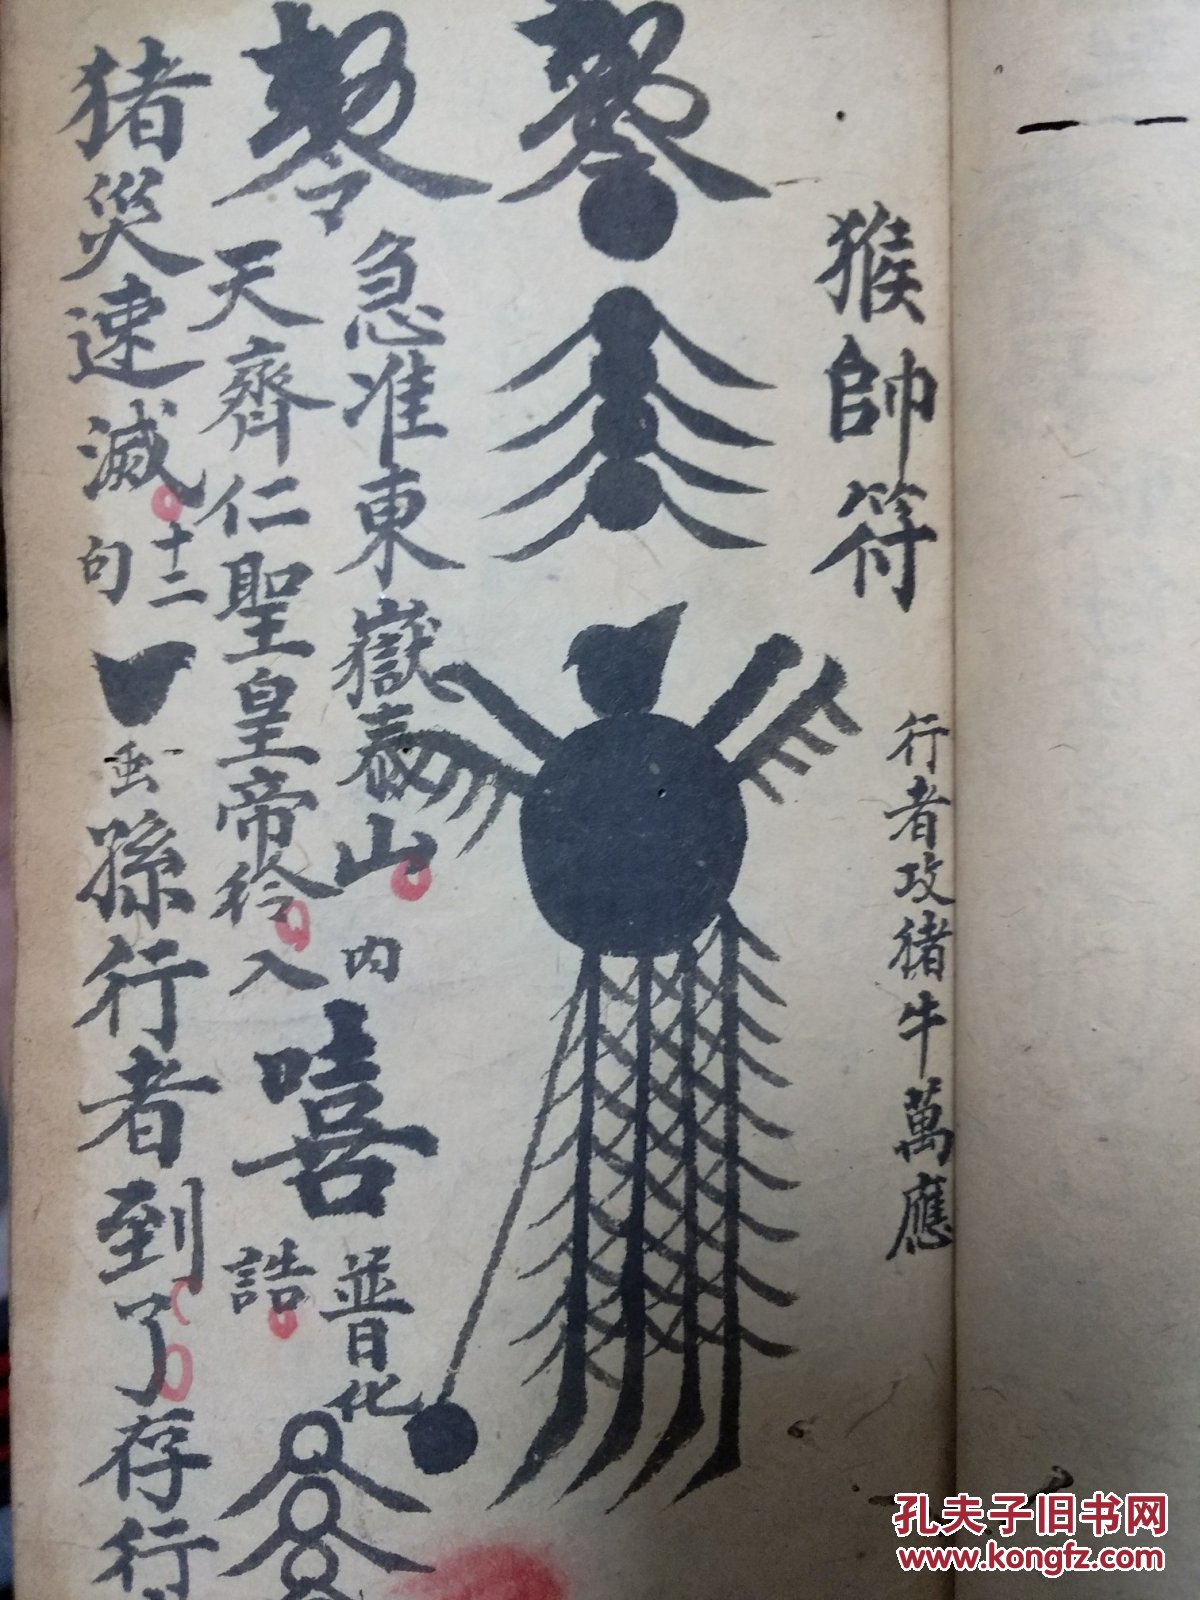 猴帥符
行者攻猪牛萬應
急准東嶽泰山
内
普化
勅令
天齊仁聖皇帝
入
嘻
誥
猪災速滅
十二
句
孫行者到了存行
孔夫子旧书网
www.kongfz.com